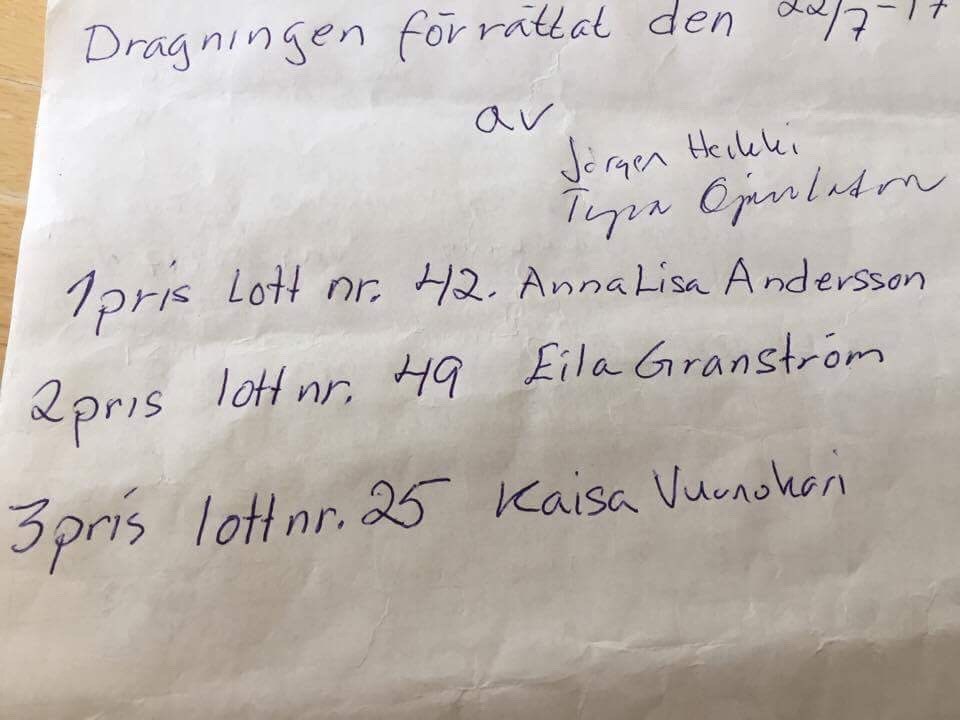 Dragningen förrättat den 22/7-17
av
Jörgen Heikki
Tyra
1 pris Lott nr. 42. AnnaLisa Andersson
2 pris lott nr. 49 Eila Granström
3 pris lott nr. 25 Kaisa Vuonokari